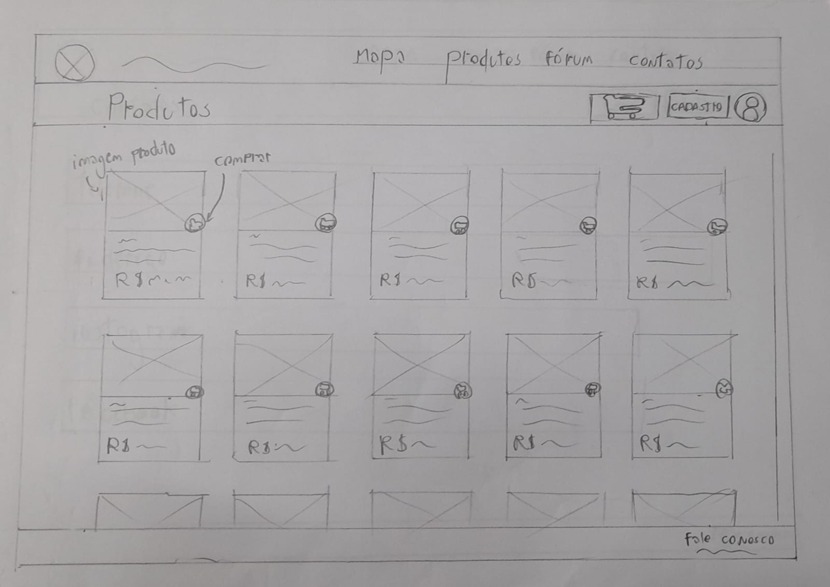 Mapa produtos fórum contatos
Produtos
CADASTRO
imagem produto
comprar
R$
R$
R$
R$
R$
R$
R$
R$
R$
R$
Fale conosco